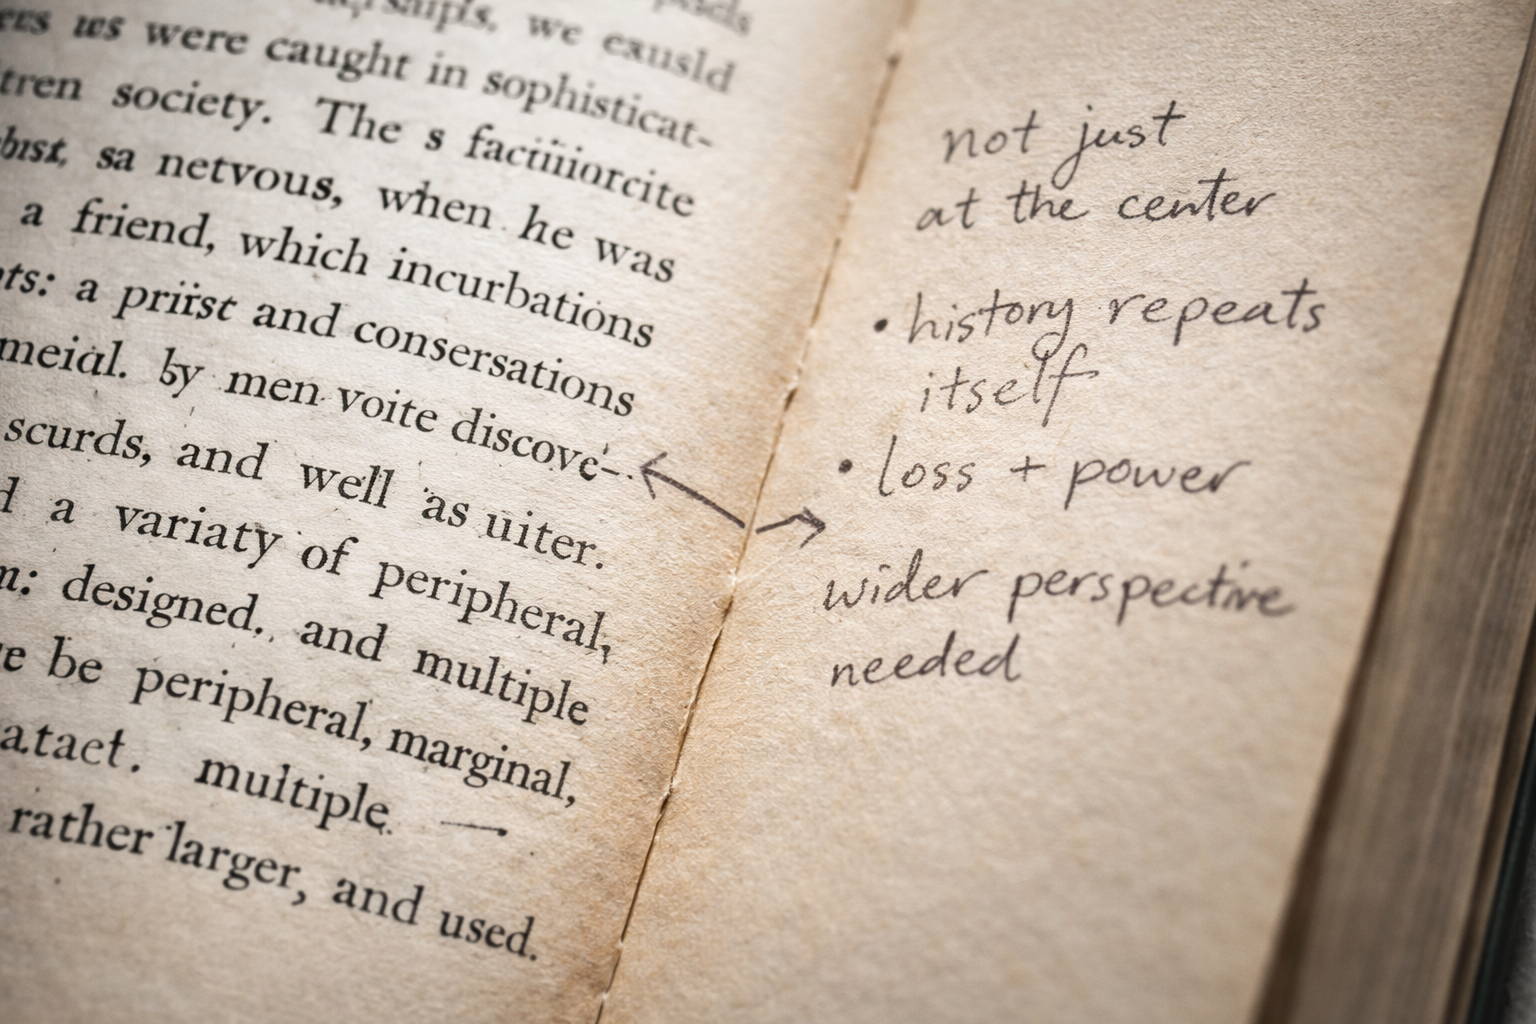 we
were caught in sophisticat-
society. The s
sa netvous, when he was
a friend, which incurbations
a priist and consersations
by men voite discove-
scurds, and well as uiter.
a variaty of peripheral,
designed. and multiple
be peripheral, marginal,
multiple. —
rather larger, and used.
not just
at the center
• history repeats
itself
• loss + power
wider perspective
needed